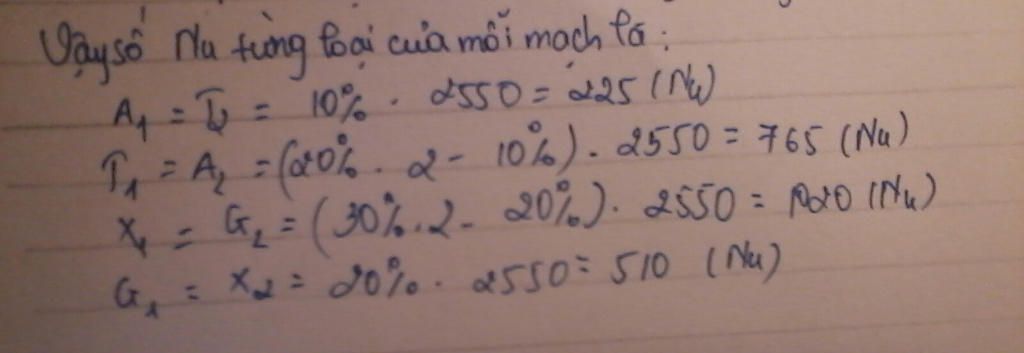 Vậy số Nu từng loại của mỗi mạch là:
A₁ = T₂ = 10% . 2550 = 225 (Nu)
T₁ = A₂ = (20% . 2 - 10%) . 2550 = 765 (Nu)
X₁ = G₂ = (30% . 2 - 20%) . 2550 = 1020 (Nu)
G₁ = X₂ = 20% . 2550 = 510 (Nu)